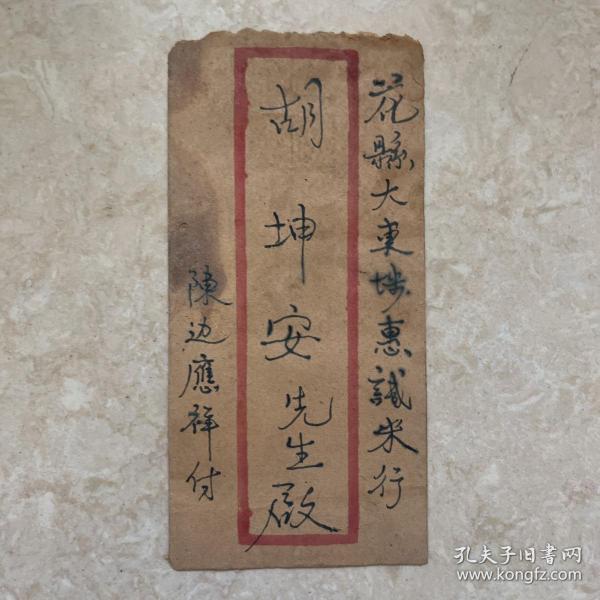 花縣大東埗惠誠米行
胡坤安先生啟
陳边應祥付
孔夫子旧書网
www.kongfz.com